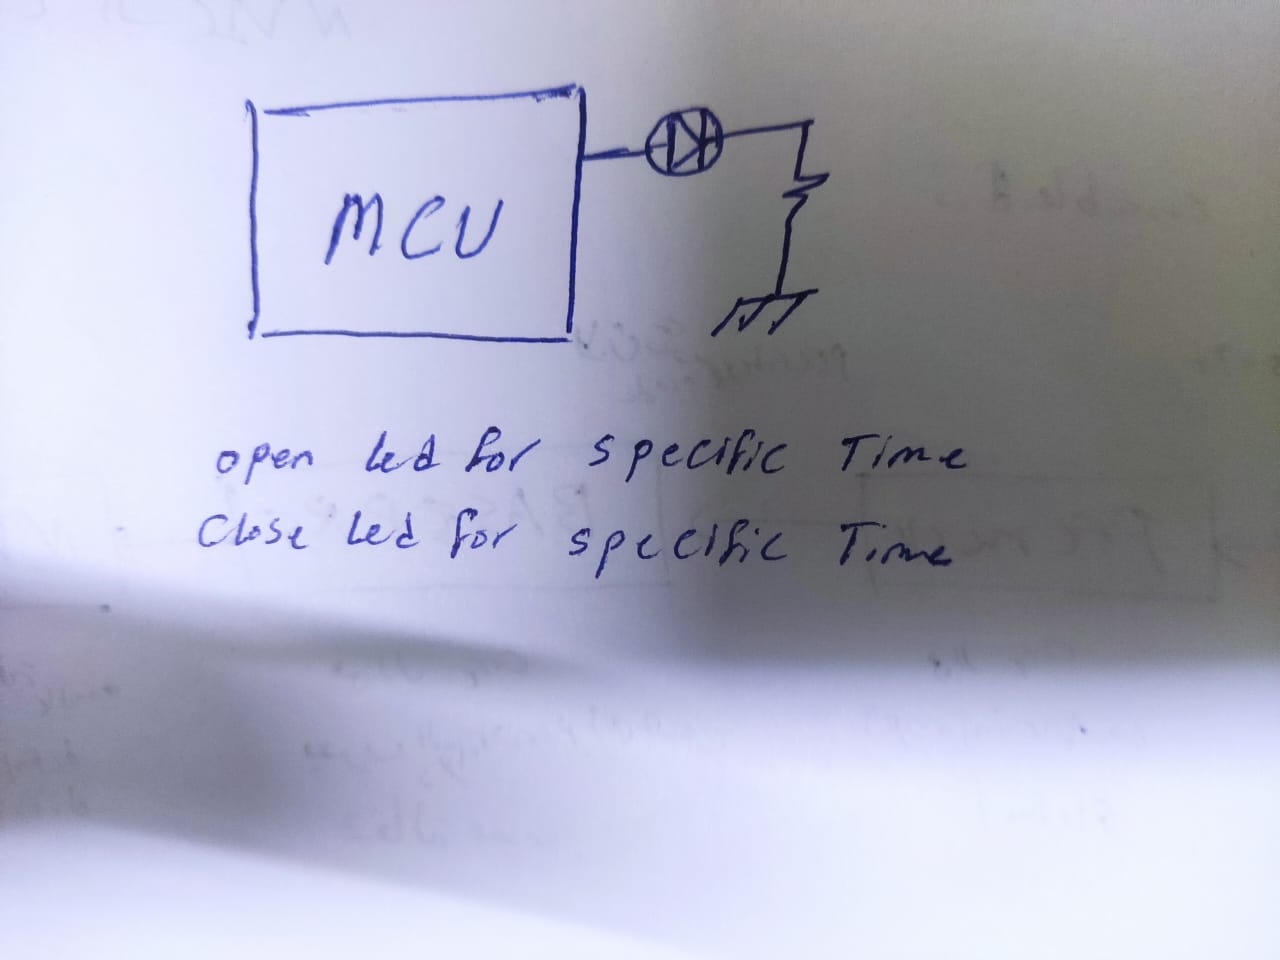 MCU
open led for specific Time
Close led for specific Time